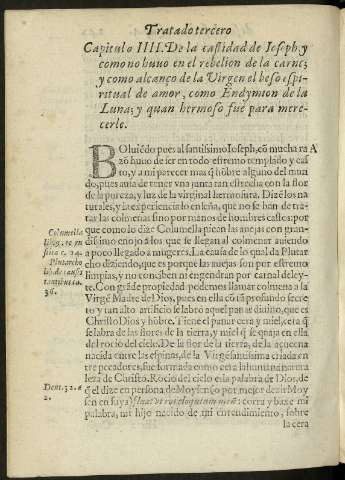 Tratado tercero
Capitulo IIII. De la castidad de Ioseph, y
como no huuo en el rebelion de la carne;
y como alcanço de la Virgen el beso espi-
ritual de amor, como Endymion de la
Luna; y quan hermoso fue para mere-
cerle.
BOluiẽdo pues al santissimo Ioseph, cõ mucha ra A
zõ huuo de ser en todo estremo templado y cas
to, y a mi parecer mas q̃ hõbre alguno del mun
do, pues auia de tener vna junta tan estrecha con la flor
de la pureza, y luz de la virginal hermosura. Dizẽ los na
turales, y la experiencia lo enseña, que no se han de tra-
tar las colmenas sino por manos de hombres castos: por
que como lo dize Columella pican las auejas con gran-
dissimo enojo à los que se llegan al colmenar auiendo
a poco llegado a mugeres. La causa de lo qual da Plutar
cho diziendo, que es porque las auejas son por estremo
limpias, y no conciben ni engendran por carnal deley-
te. Con grãde propiedad podemos llamar colmena a la
Virgẽ Madre de Dios, pues en ella cõ tã profundo secre
to y tan alto artificio se labro aquel panar diuino, que es
Christo Dios y hõbre. Tiene el panar cera y miel, cera q̃
se labra de las flores de la tierra, y miel q̃ se quaja en ella
del rocio del cielo. De la flor de la tierra, de la açucena
nacida entre las espinas, de la Virgẽ santissima criada en
tre pecadores, fue formada como cera la humana natura
leza de Christo. Rocio del cielo es la palabra de Dios, de
q̃ el dize en persona de Moysen, o por mejor dezir Moy
sen en suya: fluat vt ros eloquium meũ: corra y baxe mi
palabra, mi hijo nacido de mi entendimiento, sobre
la cera
Columella
lib. 9. re ru
stica c. 14.
Plutarcho
lib. de causis
36.
Deut. 32. a
2.